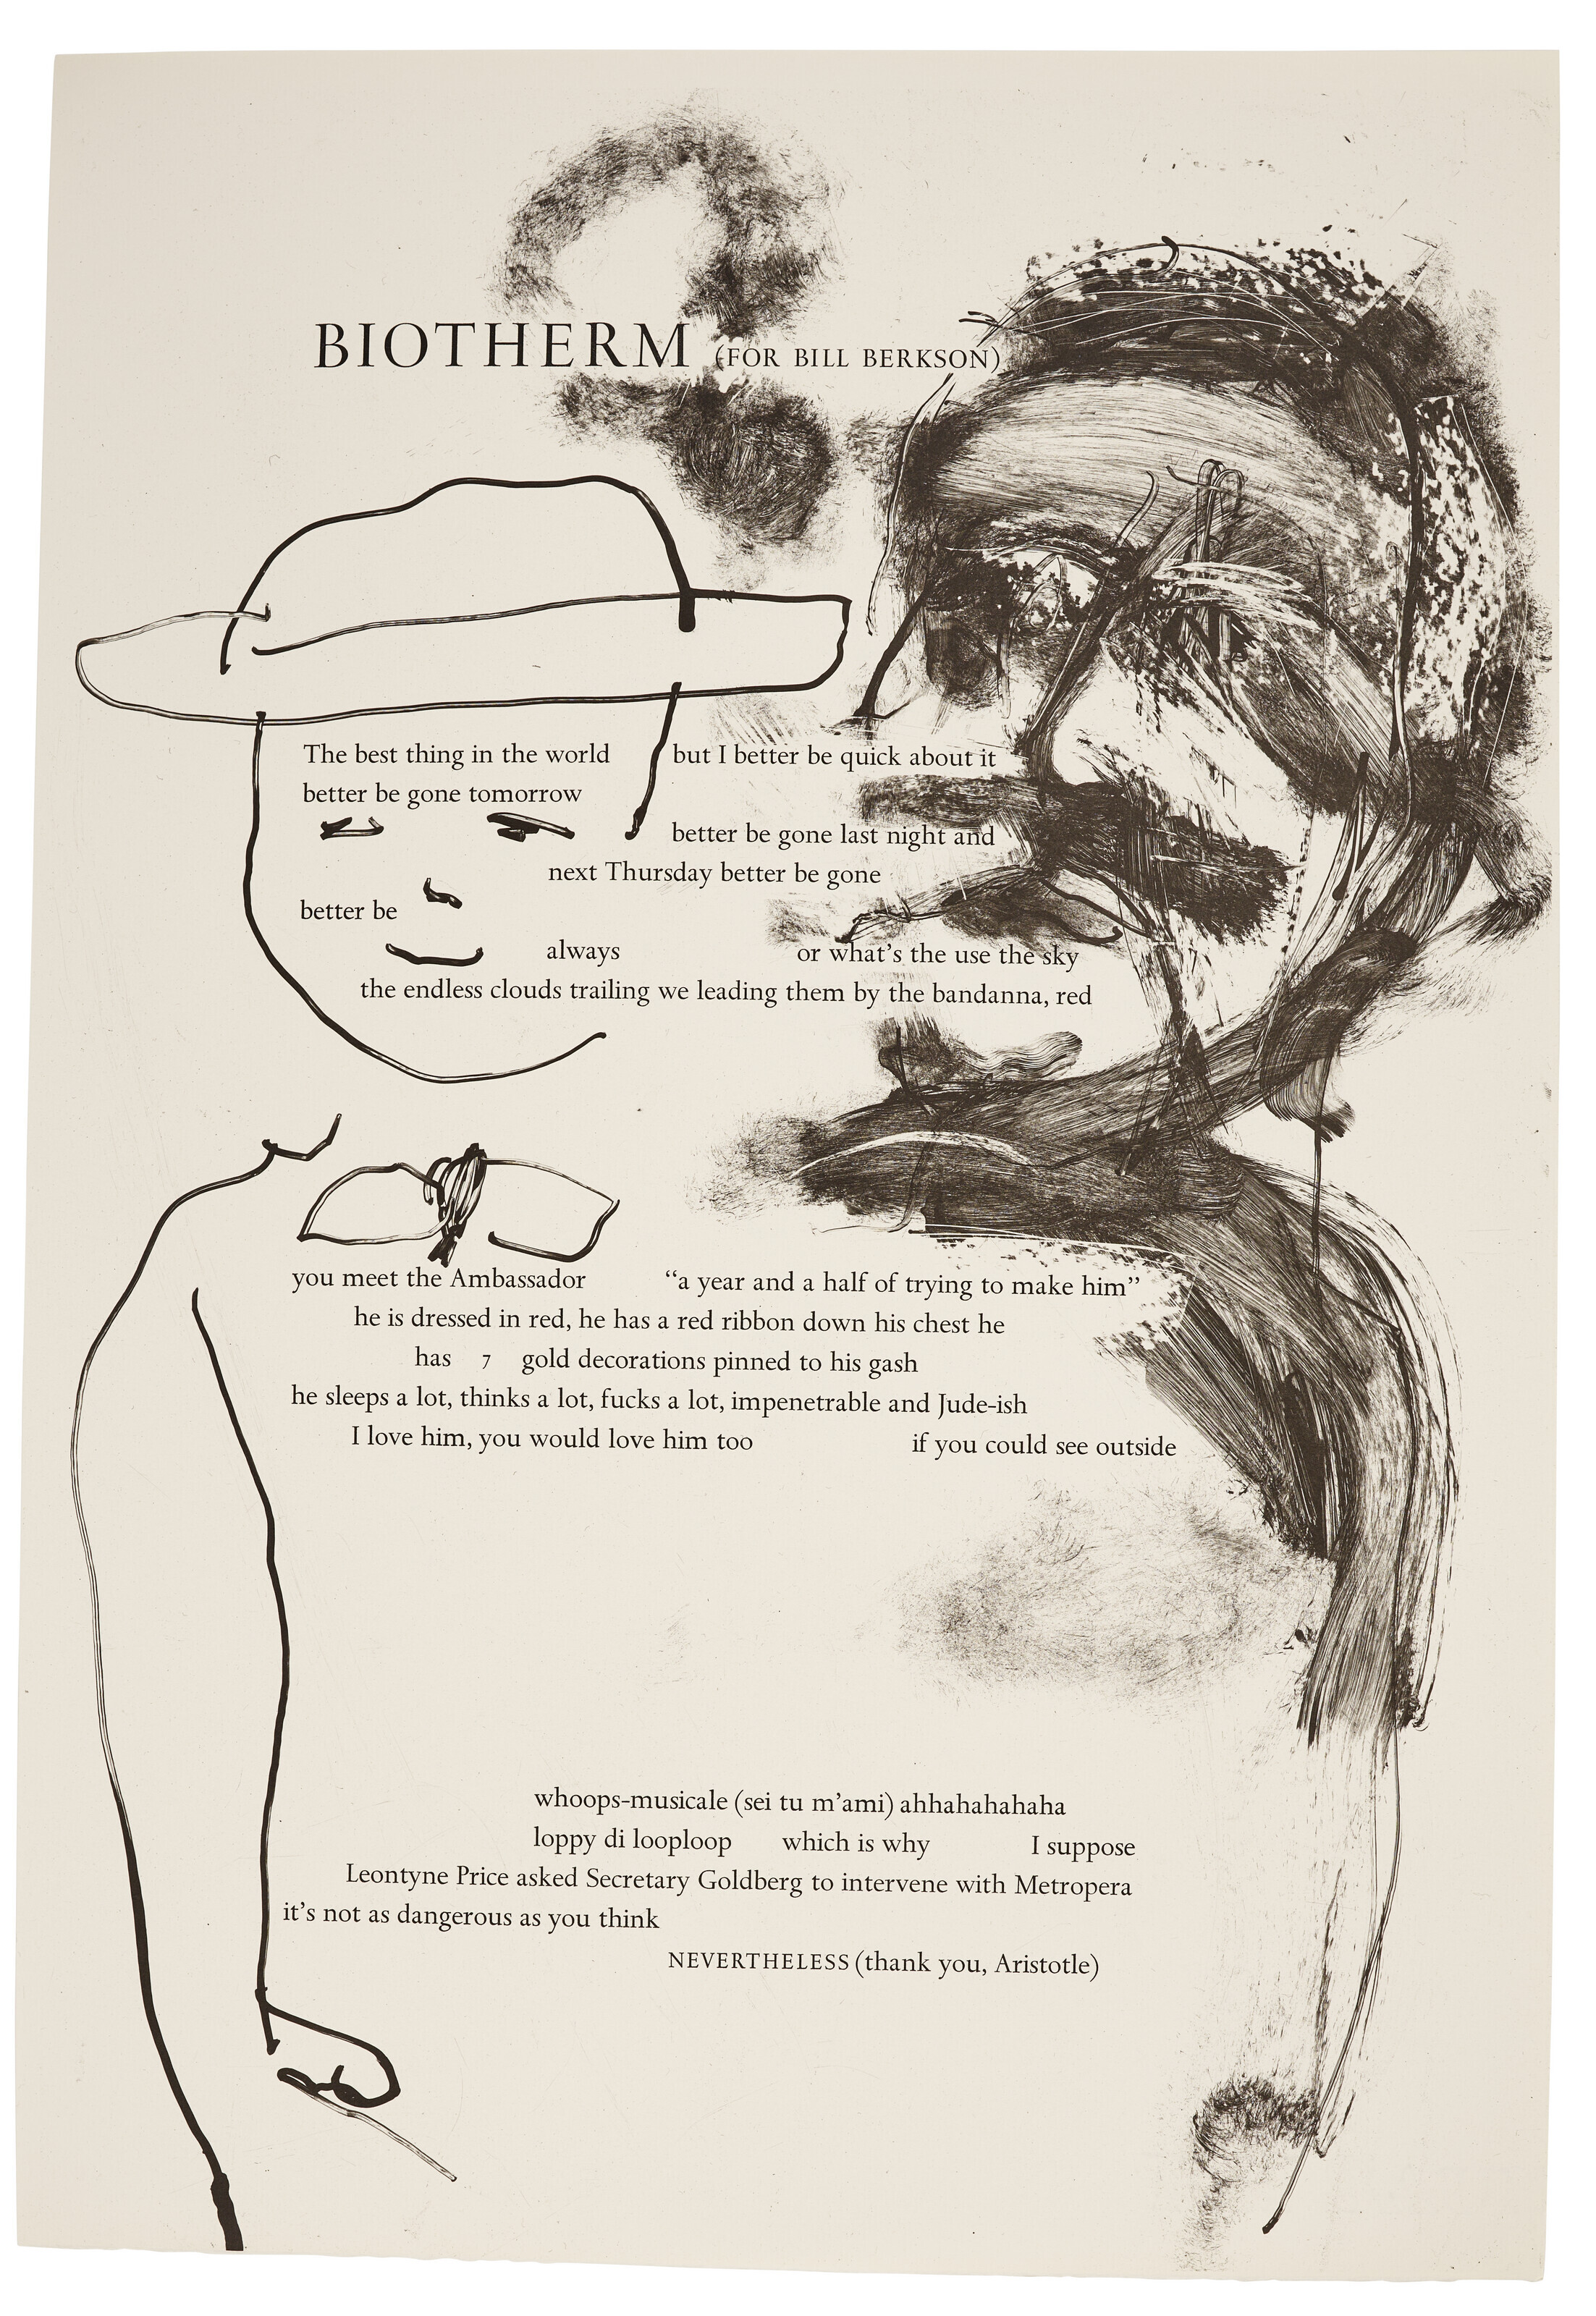 BIOTHERM (FOR BILL BERKSON)
The best thing in the world but I better be quick about it
better be gone tomorrow
better be gone last night and
next Thursday better be gone
better be
always or what’s the use the sky
the endless clouds trailing we leading them by the bandanna, red
you meet the Ambassador “a year and a half of trying to make him”
he is dressed in red, he has a red ribbon down his chest he
has 7 gold decorations pinned to his gash
he sleeps a lot, thinks a lot, fucks a lot, impenetrable and Jude-ish
I love him, you would love him too if you could see outside
whoops-musicale (sei tu m’ami) ahhahahahaha
loppy di looploop which is why I suppose
Leontyne Price asked Secretary Goldberg to intervene with Metropera
it’s not as dangerous as you think
NEVERTHELESS (thank you, Aristotle)